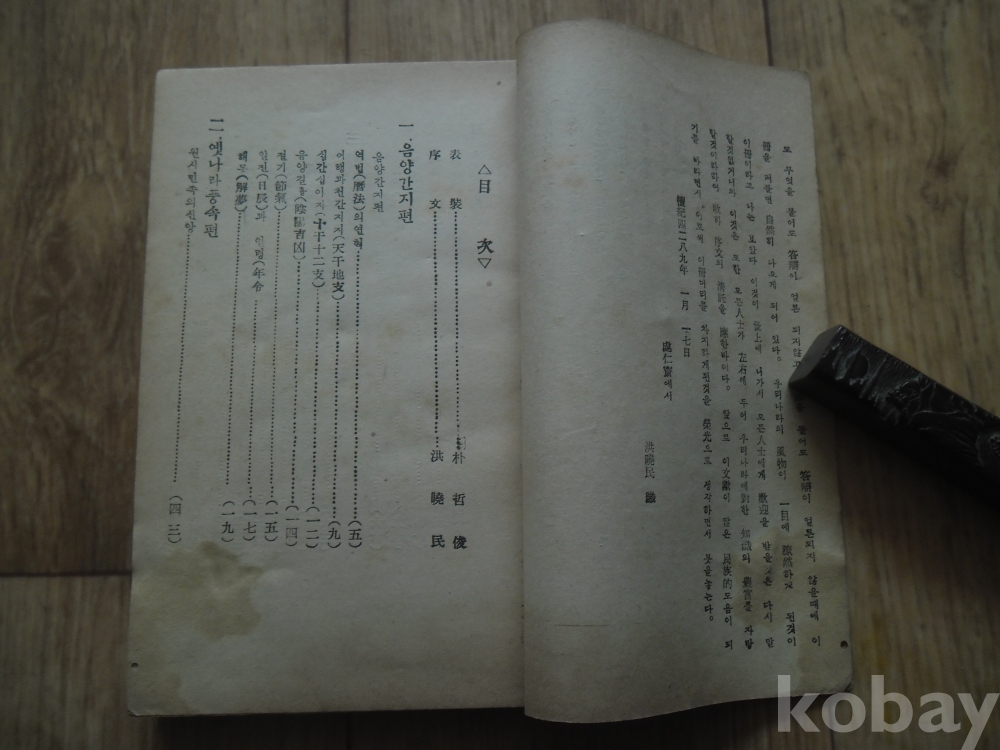 또 무엇을 물어도 答辯이 얼른 되지않고 물어도 答辯이 얼른되지 않을때에 이
冊을 펴들면 自然히 나오게 되어 있다. 우리나라의 風物이 一目에 瞭然하게 된것이
이冊이라고 나는 보았다 이것이 世上에 나가서 모든人士에게 歡迎을 받을것은 다시 말
할것없거니와 이것은 또한 모든人士가 左右에 두어 우리나라에對한 知識의 를 자랑
할것이라하여, 敢히 序文의 請託을 應한바이다. 앞으로 이文獻이 많은 民族的도움이 되
기를 바라면서 이로써 이冊머리를 차지하게된것을 榮光으로 생각하면서 붓을놓는다.
檀紀四二八九年 一月 一七日
處仁齋에서
洪曉民 識
△目 次▽
表 裝 朴 哲 俊
序 文 洪 曉 民
一. 음양간지편
음양간지편
역법(曆法)의연혁 (五)
오행과천간지지(天干地支) (九)
십간십이지(十干十二支) (一二)
음양길흉(陰陽吉凶) (一四)
절기(節氣) (一五)
일진(日辰)과 (一七)
해몽(解夢) (一九)
二. 옛나라풍속편
원시민족의신앙 (四三)
kobay